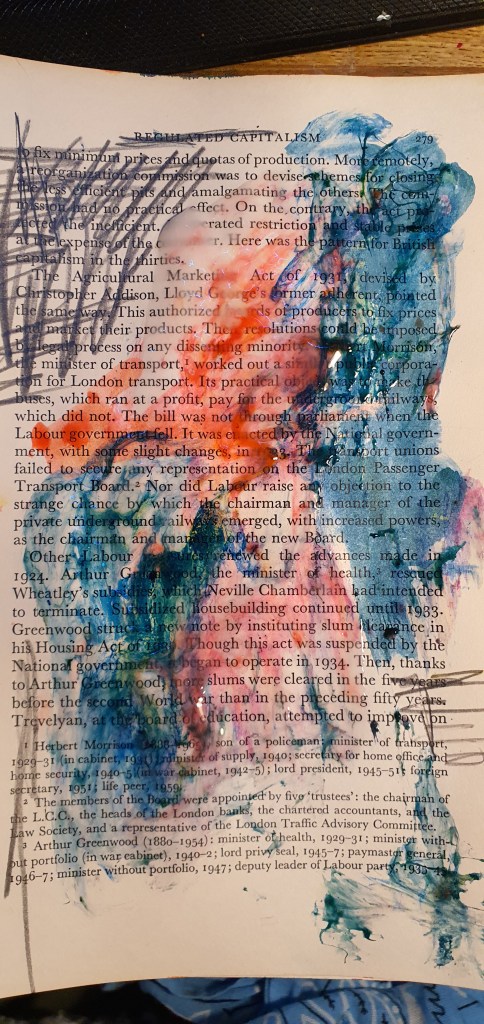 REGULATED CAPITALISM 279
to fix minimum prices and quotas of production. More remotely,
a reorganization commission was to devise schemes for closing
the less efficient pits and amalgamating the others. The com-
mission had no practical effect. On the contrary, the act pro-
tected the inefficient. rated restriction and stable prices
at the expense of the r. Here was the pattern for British
capitalism in the thirties.
The Agricultural Marketing Act of 1931, devised by
Christopher Addison, Lloyd George's former adherent, pointed
the same way. This authorized boards of producers to fix prices
and market their products. Their resolutions could be imposed
by legal process on any dissenting minority. Morrison,
the minister of transport, worked out a similar public corpora-
tion for London transport. Its practical object was to make the
buses, which ran at a profit, pay for the underground railways,
which did not. The bill was not through parliament when the
Labour government fell. It was enacted by the National govern-
ment, with some slight changes, in 1933. The transport unions
failed to secure any representation on the London Passenger
Transport Board.² Nor did Labour raise any objection to the
strange chance by which the chairman and manager of the
private underground railways emerged, with increased powers,
as the chairman and manager of the new Board.
Other Labour measures renewed the advances made in
1924. Arthur Greenwood, the minister of health,³ rescued
Wheatley's subsidies, which Neville Chamberlain had intended
to terminate. Subsidized housebuilding continued until 1933.
Greenwood struck a new note by instituting slum clearance in
his Housing Act of 1930. Though this act was suspended by the
National government, began to operate in 1934. Then, thanks
to Arthur Greenwood, more slums were cleared in the five years
before the second World than in the preceding fifty years.
Trevelyan, at the board education, attempted to improve on
¹ Herbert Morrison (1888–1965), son of a policeman: minister of transport,
1929–31 (in cabinet, 1931); minister of supply, 1940; secretary for home office and
home security, 1940–5 (in war cabinet, 1942–5); lord president, 1945–51; foreign
secretary, 1951; life peer, 1959.
² The members of the Board were appointed by five 'trustees': the chairman of
the L.C.C., the heads of the London banks, the chartered accountants, and the
Law Society, and a representative of the London Traffic Advisory Committee.
³ Arthur Greenwood (1880–1954): minister of health, 1929–31; minister with-
out portfolio (in war cabinet), 1940–2; lord privy seal, 1945–7; paymaster general,
1946–7; minister without portfolio, 1947; deputy leader of Labour party,